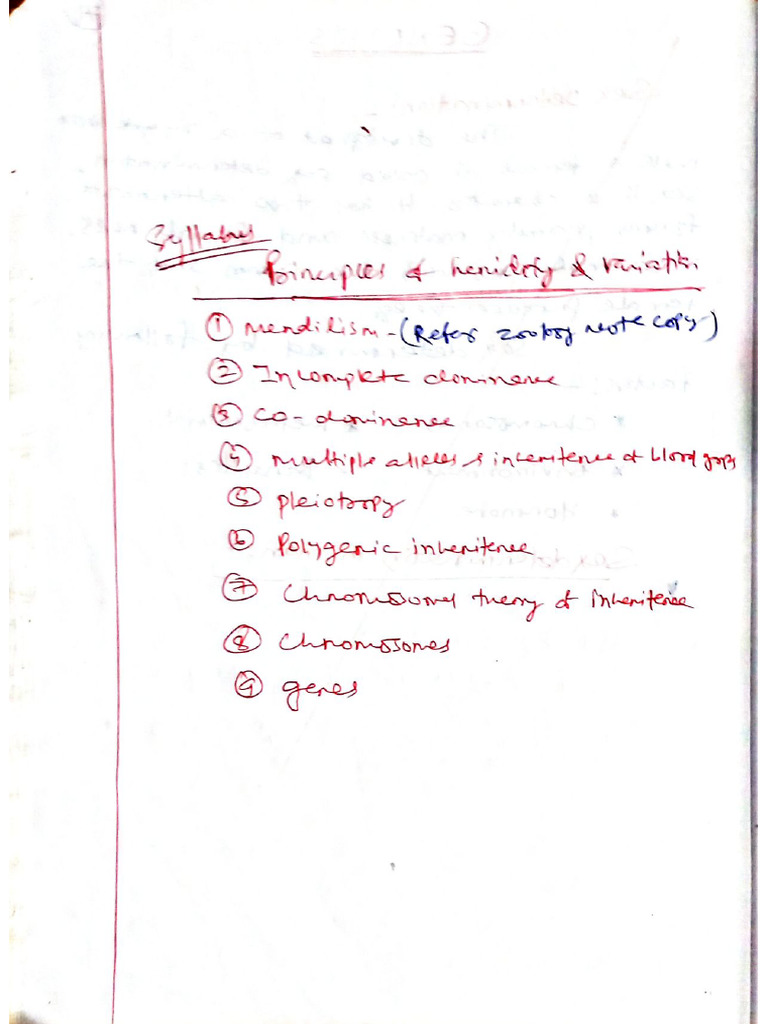 Syllabus
Principles of heridity & variation
① mendilism - (Refer zoology note copy)
② Incomplete dominence
③ co-dominence
④ multiple alleles & inheritence of blood grps
⑤ pleiotropy
⑥ Polygenic inheritence
⑦ Chromosomal theory of inheritence
⑧ Chromosomes
⑨ genes